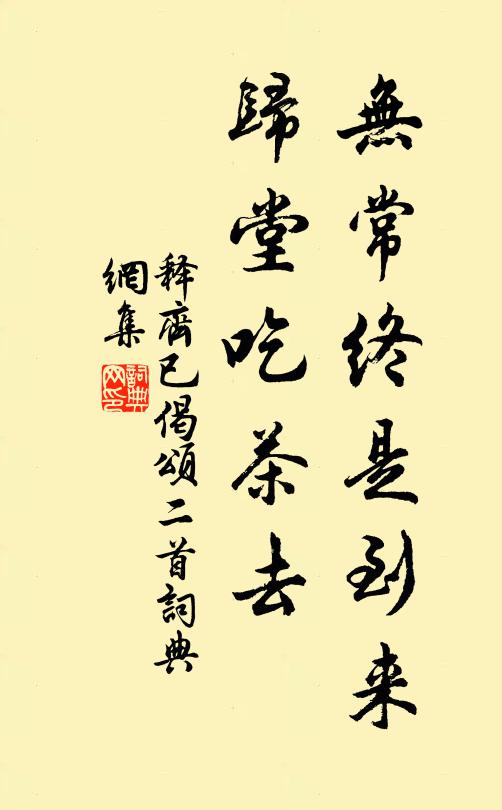 無常終是到来
歸堂吃茶去
释齊已偈頌二首詞典
網集
詞典
网印